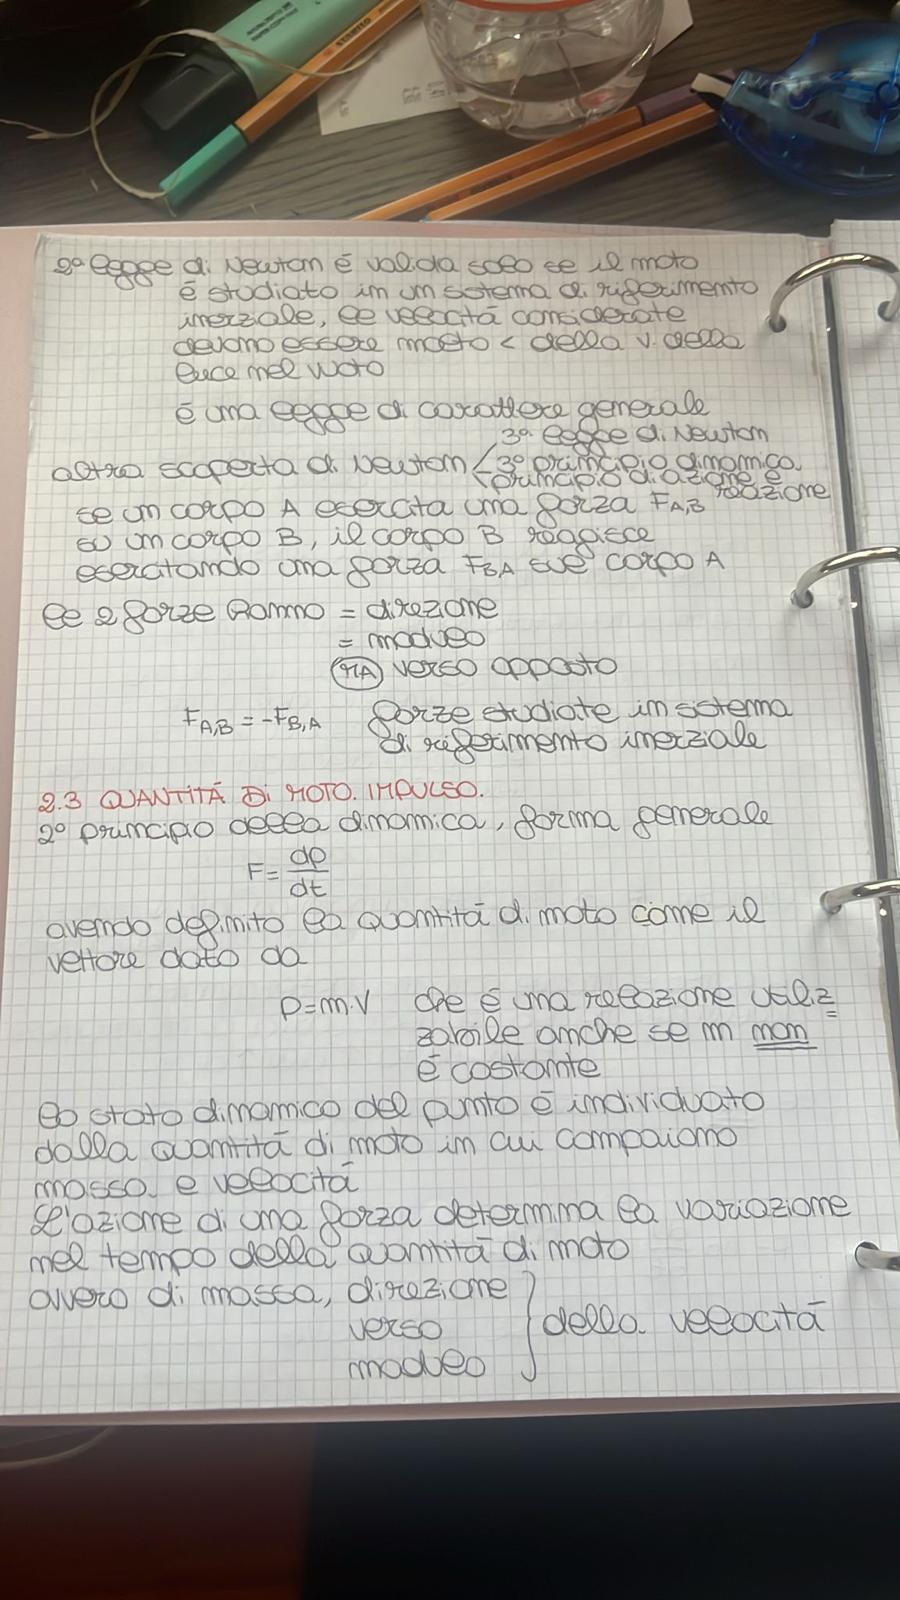 2ª legge di Newton è valida solo se il moto
è studiato in un sistema di riferimento
inerziale, le velocità considerate
devono essere molto < della v. della
luce nel vuoto
è una legge di carattere generale
3ª legge di Newton
altra scoperta di Newton < 3º principio dinamica
principio di azione e
reazione
se un corpo A esercita una forza F_A,B
su un corpo B, il corpo B reagisce
esercitando una forza F_BA sul corpo A
le 2 forze hanno = direzione
= modulo
MA verso opposto
F_A,B = -F_B,A forze studiate in sistema
di riferimento inerziale
2.3 QUANTITÀ DI MOTO. IMPULSO.
2º principio della dinamica, forma generale
F = dp/dt
avendo definito la quantità di moto come il
vettore dato da
p = m·v che è una relazione utiliz
zabile anche se m non
è costante
lo stato dinamico del punto è individuato
dalla quantità di moto in cui compaiono
massa e velocità
L'azione di una forza determina la variazione
nel tempo della quantità di moto
ovvero di massa, direzione
verso } della velocità
modulo